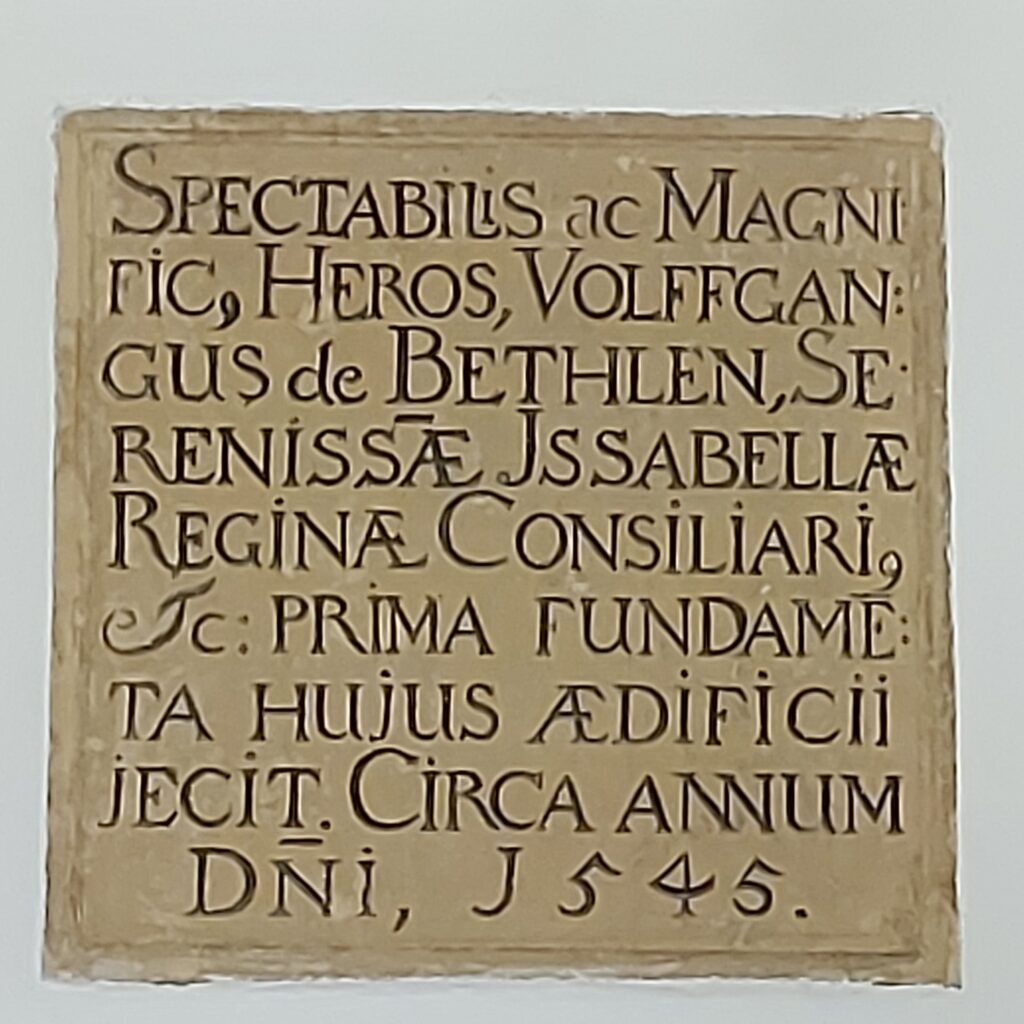 SPECTABILIS ac MAGNI
FIC, HEROS, VOLFFGAN:
GUS de BETHLEN, SE·
RENISSÆ̅ JSSABELLÆ
REGINÆ CONSILIARI,
&c: PRIMA FUNDAMĒ:
TA HUJUS ÆDIFICII
JECIT. CIRCA ANNUM
DN̄I, J545.